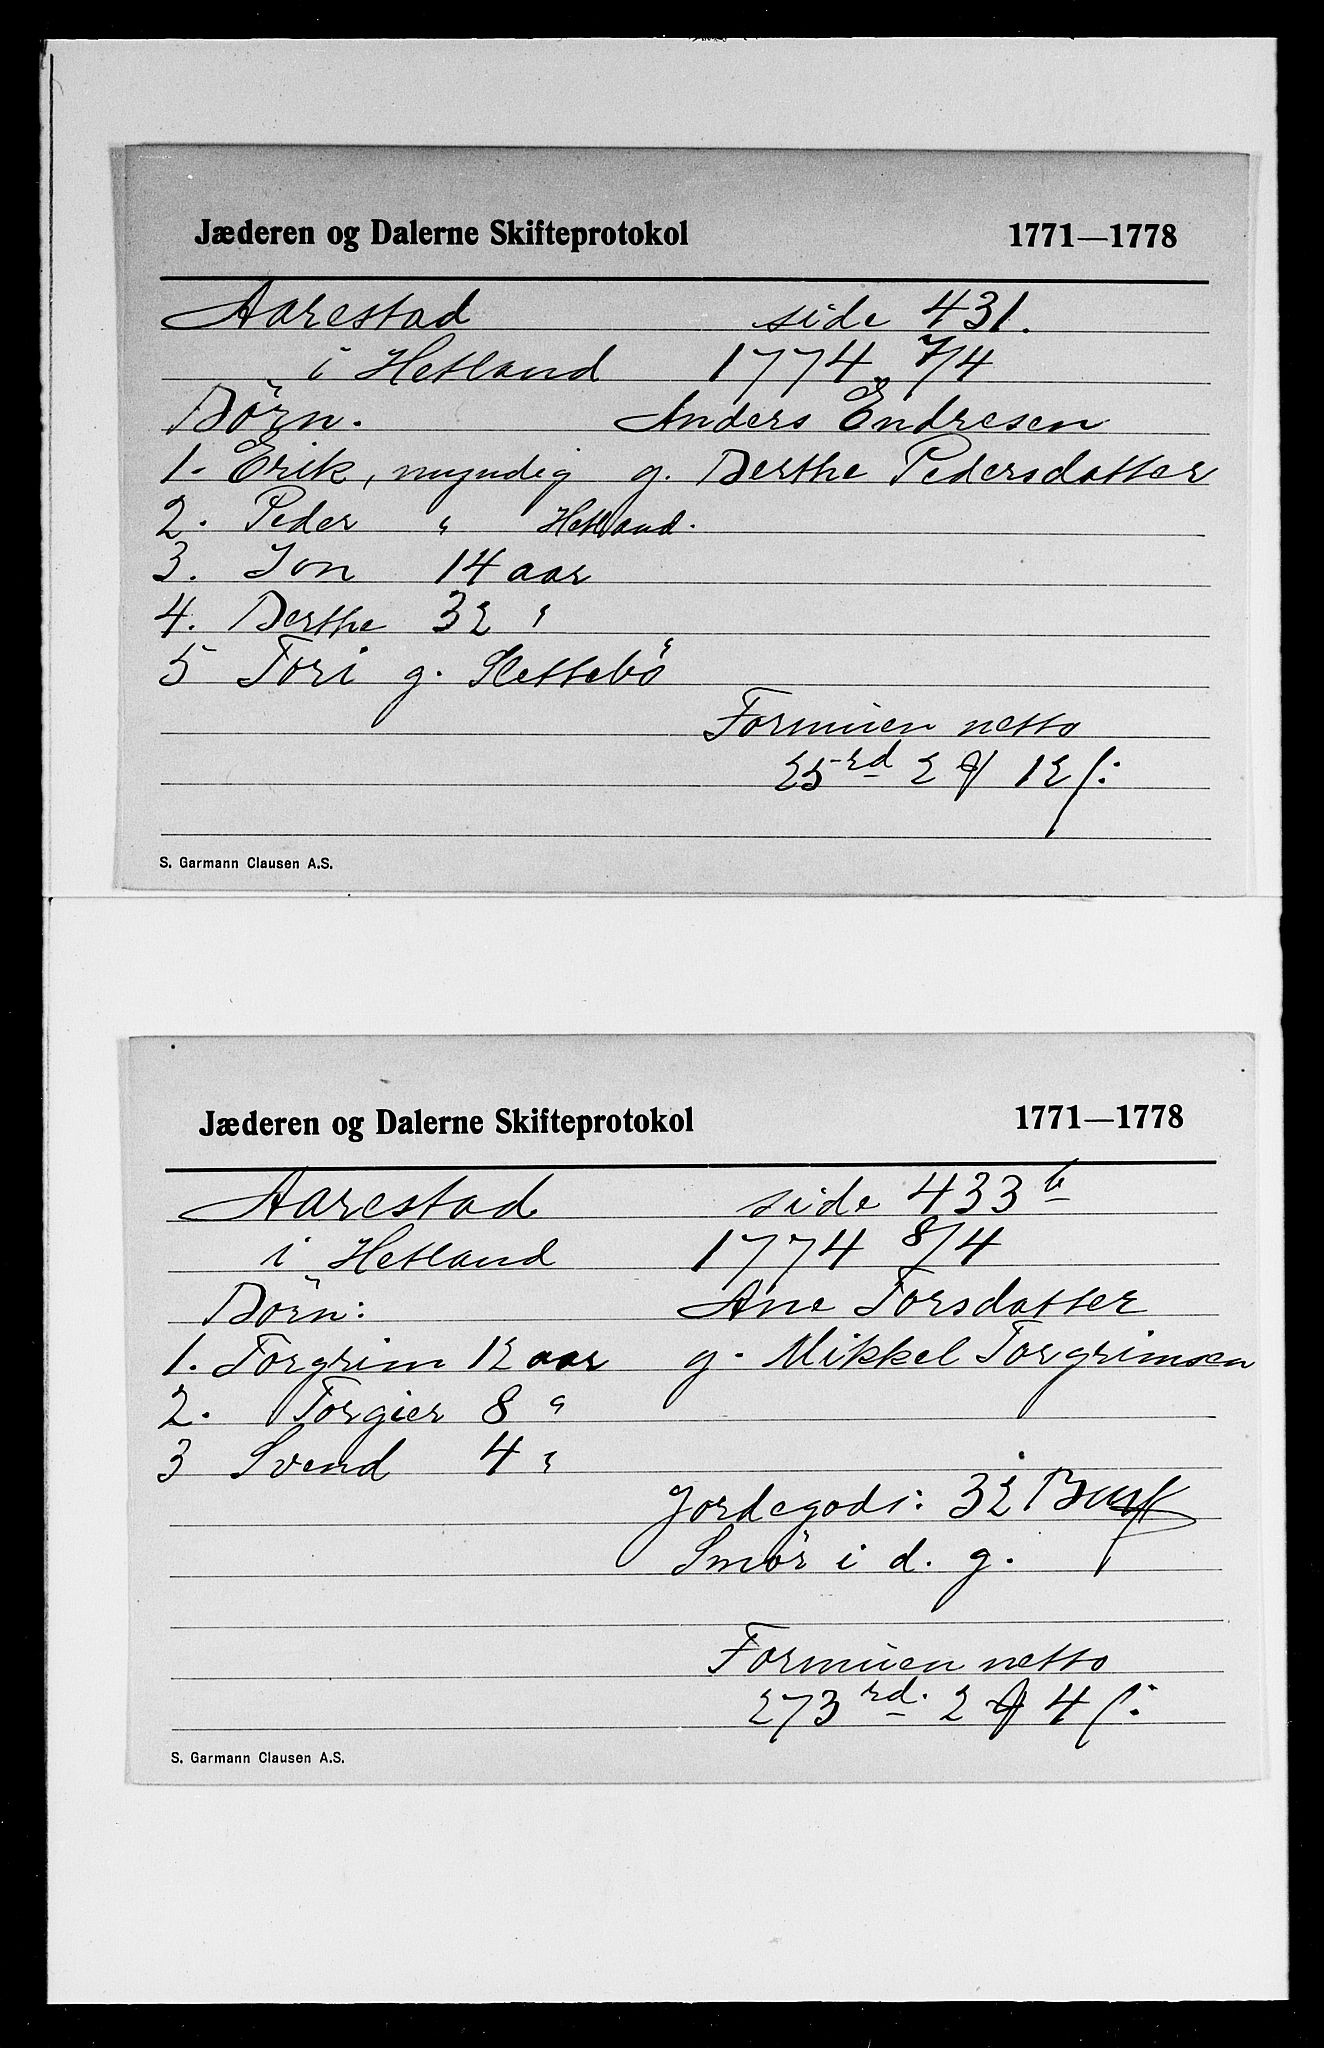 Jæderen og Dalerne Skifteprotokol 1771—1778
Aarestad side 431.
i Hetland 1774 7/4
Börn. Anders Endresen
1. Erik, myndig g. Berthe Pedersdatter
2. Peder " Hetland.
3. Jon 14 aar
4. Berthe 32 "
5 Tori g. Slettebö
Formuen netto
25 rd 2 ₰ 12 ſ:
S. Garmann Clausen A.S.
Jæderen og Dalerne Skifteprotokol 1771—1778
Aarestad side 433 b
i Hetland 1774 8/4
Börn: Ane Torsdatter
1. Torgrim 12 aar g. Mikkel Torgrimsen
2. Torgier 8 "
3 Svend 4 "
Jordegods: 32
Smör i d. g.
Formuen netto
273 rd. 2 ₰ 4 ſ:
S. Garmann Clausen A.S.